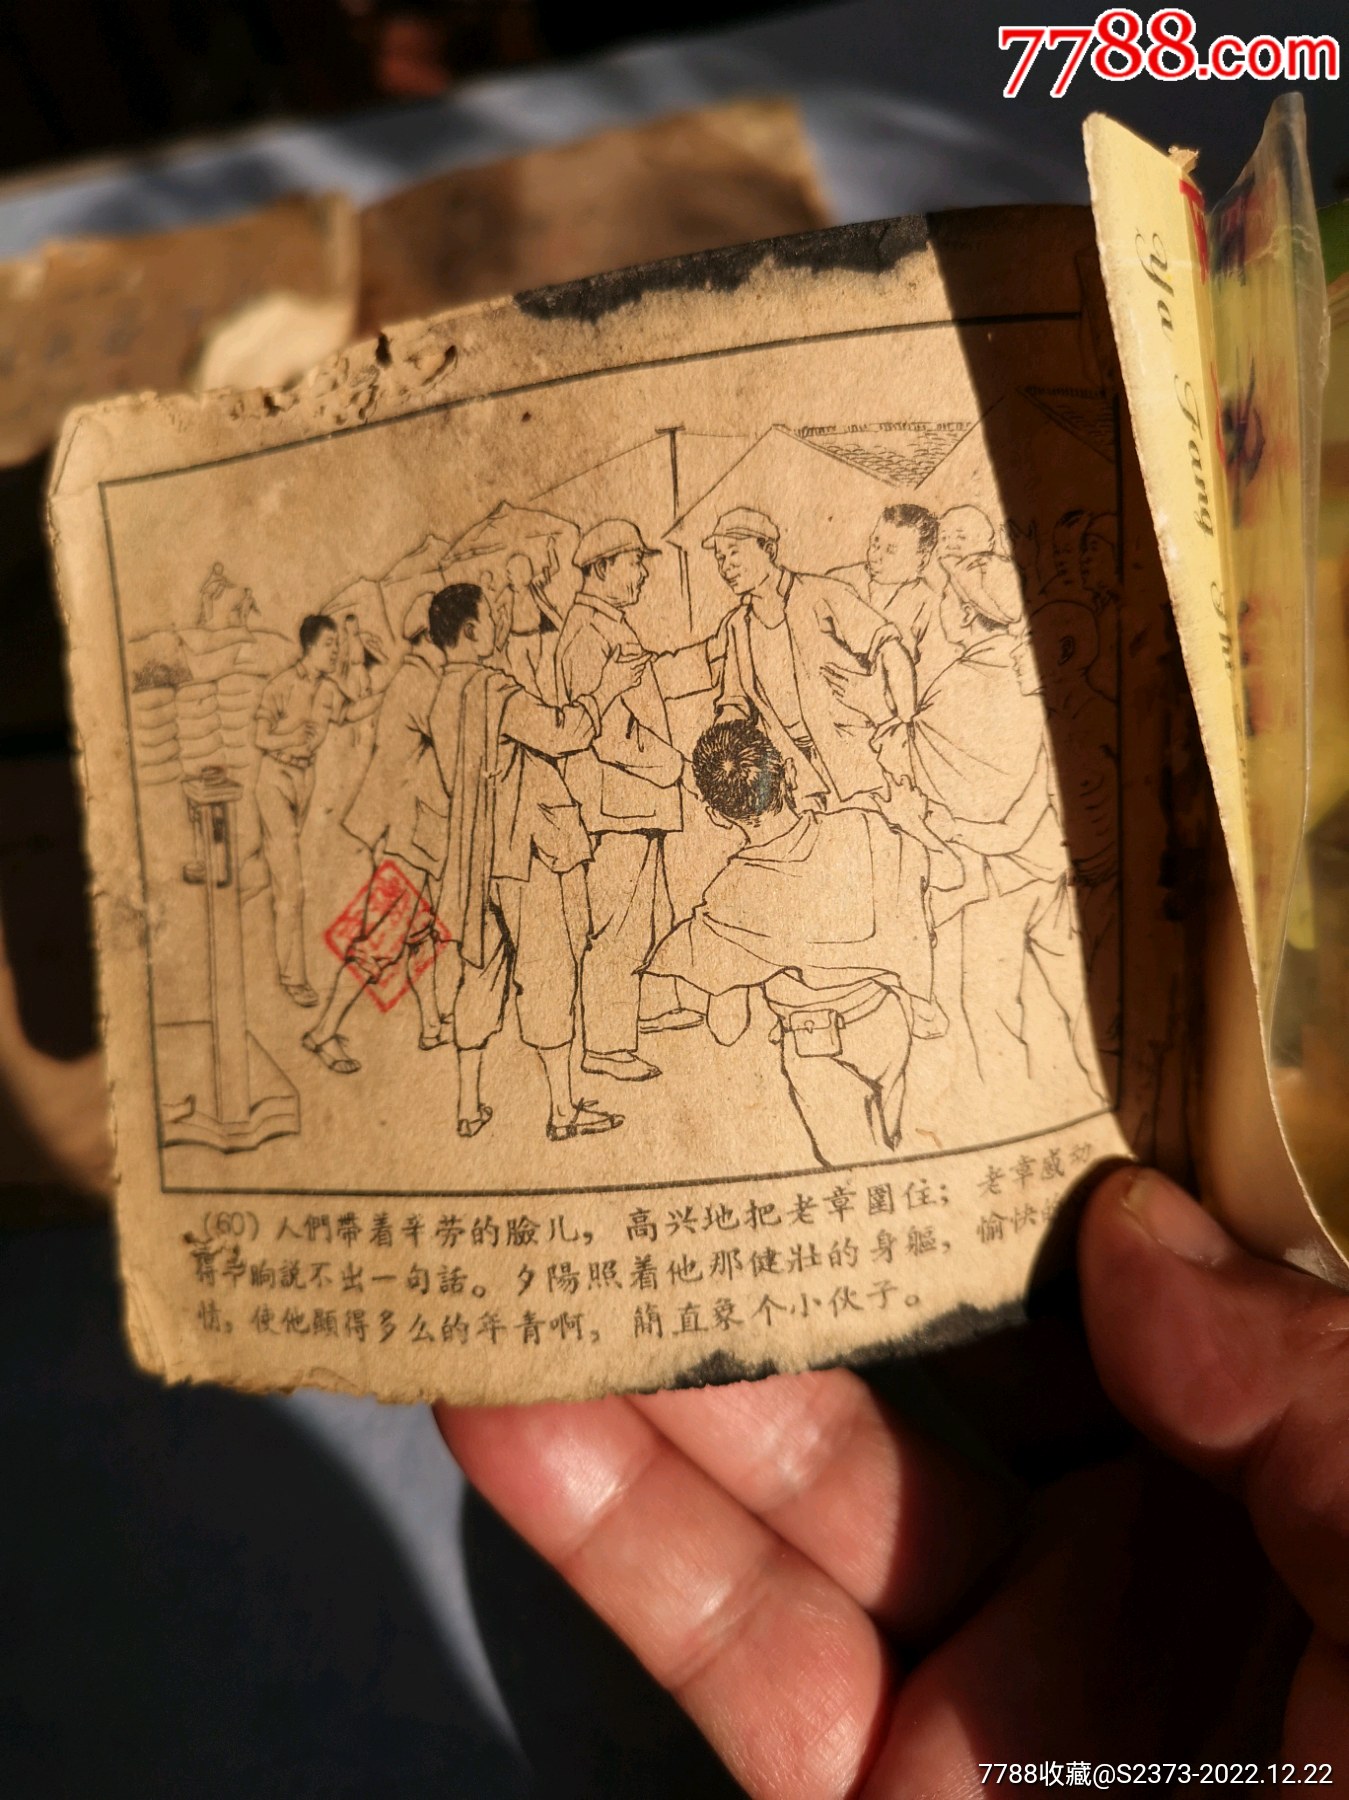 7788.com
Ya Fang
(60) 人們帶着辛劳的臉儿，高兴地把老章圍住；老章感动
得半晌説不出一句話。夕陽照着他那健壯的身軀，愉快的
情，使他顯得多么的年青啊，簡直象个小伙子。
7788收藏@S2373-2022.12.22